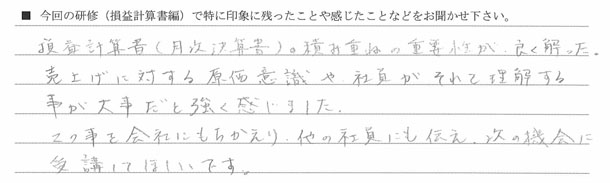 ■ 今回の研修（損益計算書編）で特に印象に残ったことや感じたことなどをお聞かせ下さい。
損益計算書（月次決算書）。積み重ねの重要性が、良く解った。
売上げに対する原価意識や、社員がそれを理解する
事が大事だと強く感じました。
この事を会社にもちかえり、他の社員にも伝え、次の機会に
受講してほしいです。